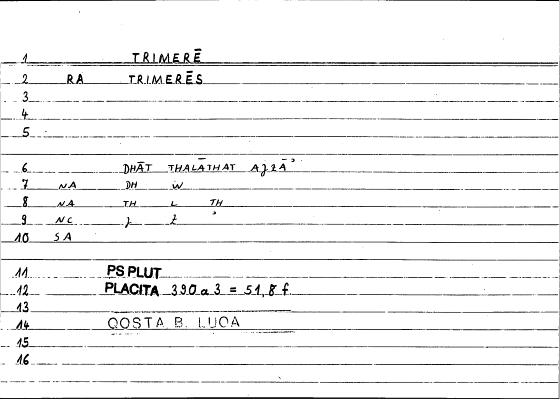 1 TRIMERĒ
2 RA TRIMERĒS
3
4
5
6 DHĀT THALĀTHAT AJZĀʾ
7 NA DH W
8 NA TH L TH
9 NC J Z ʾ
10 SA
11 PS PLUT
12 PLACITA 390 a 3 = 51,8 f
13
14 QOSTA B. LUQA
15
16